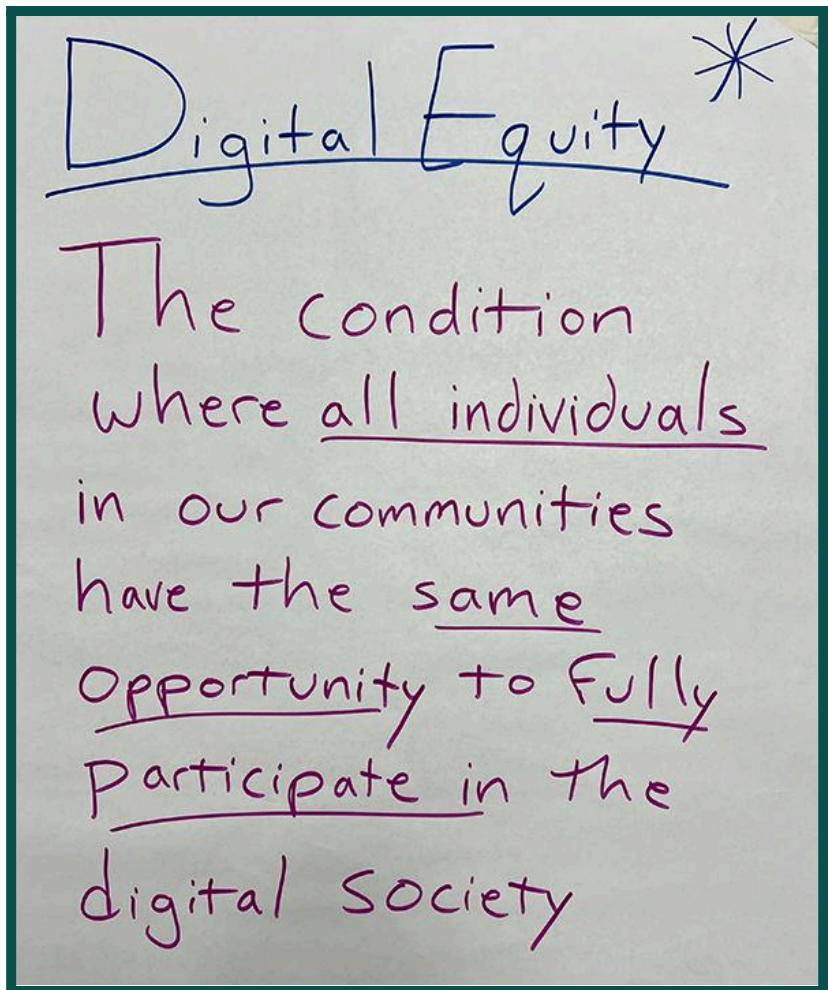 Digital Equity *
The condition
where all individuals
in our communities
have the same
opportunity to fully
participate in the
digital society